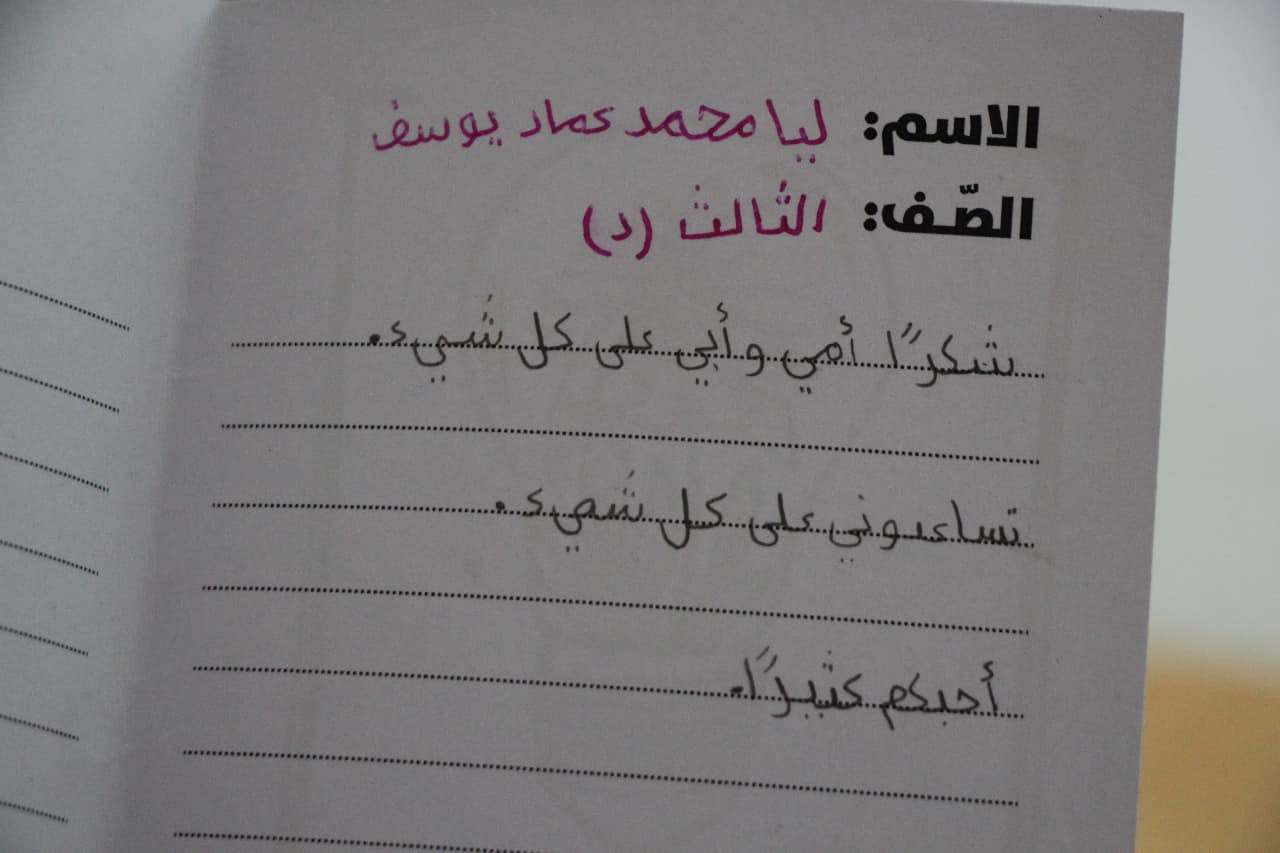 الاسم: ليا محمد عماد يوسف
الصّف: الثالث (د)
شكرًا أمي وأبي على كل شيء.
تساعدوني على كل شيء.
أحبكم كثيرًا.